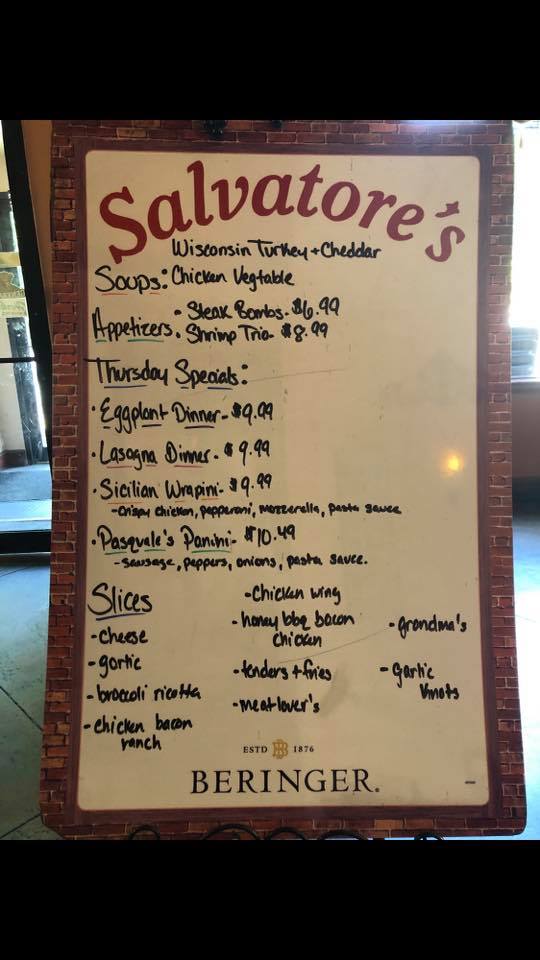 Salvatore's
Wisconsin Turkey + Cheddar
Soups: Chicken Vegtable
Appetizers
• Steak Bombs - $6.99
• Shrimp Trio - $8.99
Thursday Specials:
• Eggplant Dinner - $9.99
• Lasagna Dinner - $9.99
• Sicilian Wrapini - $9.99
- Crispy chicken, pepperoni, mozzerella, pasta sauce
• Pasquale's Panini - $10.49
- sausage, peppers, onions, pasta sauce.
Slices
- cheese
- gortic
- broccoli ricotta
- chicken bacon
ranch
- Chicken wing
- honey bbq bacon
chicken
- tenders + fries
- meat lover's
- grandma's
- Garlic
Knots
ESTD B 1876
BERINGER.